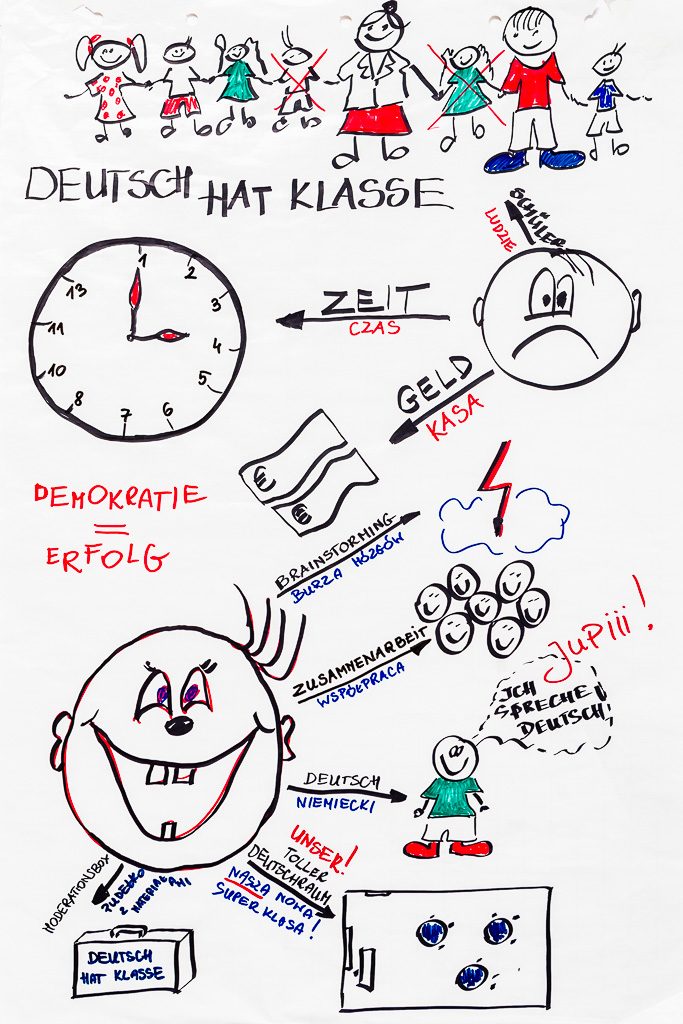 DEUTSCH HAT KLASSE
SCHÜLER
LUDZIE
1
2
3
4
5
6
7
8
10
11
13
ZEIT
CZAS
GELD
KASA
DEMOKRATIE
=
ERFOLG
BRAINSTORMING
BURZA MÓZGÓW
ZUSAMMENARBEIT
WSPÓŁPRACA
JUPiii!
ICH
SPRECHE
DEUTSCH!
DEUTSCH
NIEMIECKI
UNSER!
TOLLER
DEUTSCHRAUM
NASZA NOWA
SUPER KLASA!
MODERATIONSBOX
PUDEŁKO
Z MATERIAŁAMI
DEUTSCH
HAT KLASSE